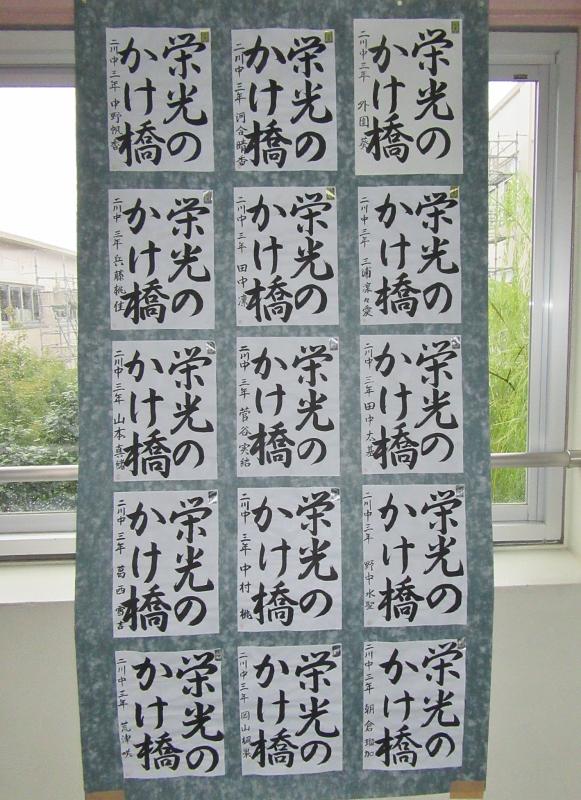 栄光の
かけ橋
二川中 三年 外園 葵
栄光の
かけ橋
二川中 三年 河合晴香
栄光の
かけ橋
二川中 三年 中野帆香
栄光の
かけ橋
二川中 三年 三浦凜々愛
栄光の
かけ橋
二川中 三年 田中 凜
栄光の
かけ橋
二川中 三年 兵藤桃佳
栄光の
かけ橋
二川中 三年 田中太基
栄光の
かけ橋
二川中 三年 菅谷実結
栄光の
かけ橋
二川中 三年 山本真緒
栄光の
かけ橋
二川中 三年 野中水聖
栄光の
かけ橋
二川中 三年 中村 桃
栄光の
かけ橋
二川中 三年 葛西
栄光の
かけ橋
二川中 三年 朝倉 瑠加
栄光の
かけ橋
二川中 三年 岡山楓果
栄光の
かけ橋
二川中 三年 荒津 咲